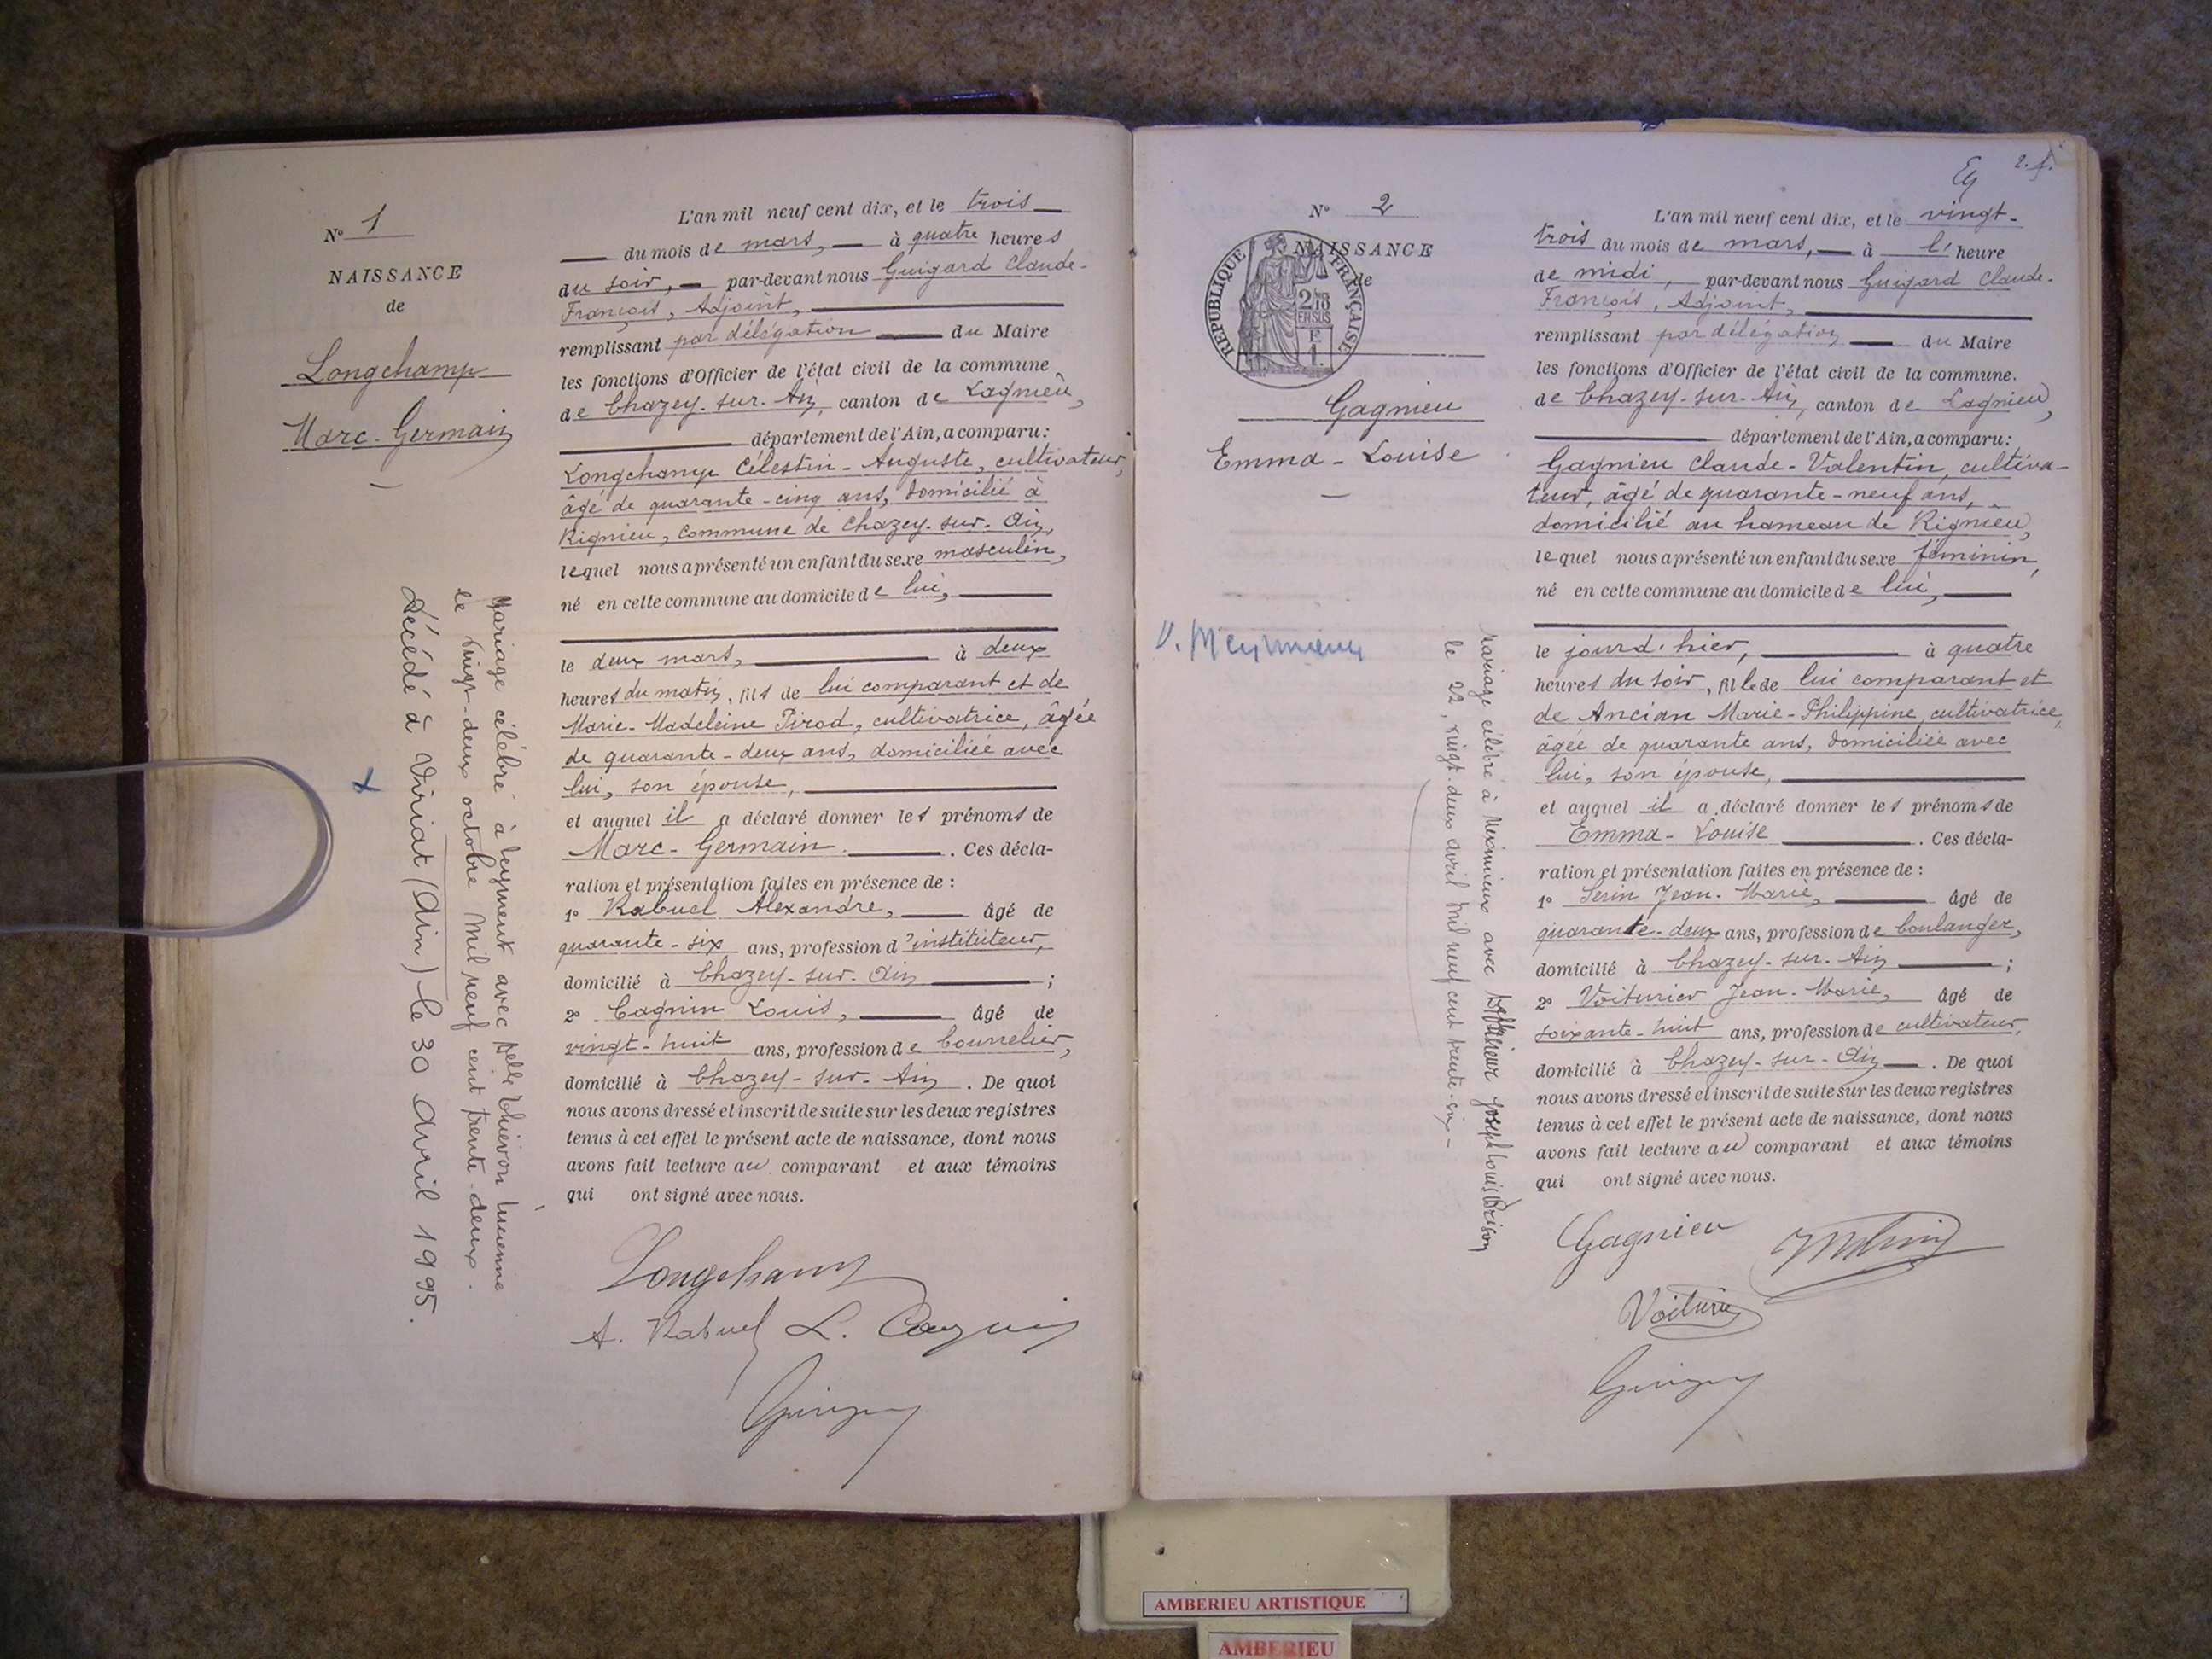 N° 1
NAISSANCE
de
Longchamp
Marc-Germain
L'an mil neuf cent dix, et le trois
du mois de mars, à quatre heures
du soir, par-devant nous Guigard Claude-
François, Adjoint,
remplissant par délégation du Maire
les fonctions d'Officier de l'état civil de la commune
de Chazey-sur-Ain, canton de Lagnieu,
département de l'Ain, a comparu:
Longchamp Célestin-Auguste, cultivateur,
âgé de quarante-cinq ans, domicilié à
Rignieu, commune de Chazey-sur-Ain,
lequel nous a présenté un enfant du sexe masculin,
né en cette commune au domicile de lui,
le deux mars, à deux
heures du matin, fils de lui comparant et de
Marie-Madeleine Pirod, cultivatrice, âgée
de quarante-deux ans, domiciliée avec
lui, son épouse,
et auquel il a déclaré donner les prénoms de
Marc-Germain. Ces décla-
ration et présentation faites en présence de :
1° Rabuel Alexandre, âgé de
quarante-six ans, profession d'instituteur,
domicilié à Chazey-sur-Ain ;
2° Cagnin Louis, âgé de
vingt-huit ans, profession de bourrelier,
domicilié à Chazey-sur-Ain. De quoi
nous avons dressé et inscrit de suite sur les deux registres
tenus à cet effet le présent acte de naissance, dont nous
avons fait lecture au comparant et aux témoins
qui ont signé avec nous.
Longchamp
A. Rabuel L. Cagnin
Mariage célébré à Leyment avec Delle Thievon Lucienne
le vingt-deux octobre mil neuf cent trente-deux.
Décédé à Viriat (Ain) le 30 avril 1995.
N° 2
NAISSANCE
de
RÉPUBLIQUE FRANÇAISE
2/10 EN SUS
F.
1.
Gagnieu
Emma-Louise
V. Meyrmieux
L'an mil neuf cent dix, et le vingt-
trois du mois de mars, à l'heure
de midi, par-devant nous Guigard Claude-
François, Adjoint,
remplissant par délégation du Maire
les fonctions d'Officier de l'état civil de la commune.
de Chazey-sur-Ain, canton de Lagnieu,
département de l'Ain, a comparu:
Gagnieu Claude-Valentin, cultiva-
teur, âgé de quarante-neuf ans,
domicilié au hameau de Rignieu,
lequel nous a présenté un enfant du sexe féminin,
né en cette commune au domicile de lui,
le jourd'hier, à quatre
heures du soir, fille de lui comparant et
de Ancian Marie-Philippine, cultivatrice,
âgée de quarante ans, domiciliée avec
lui, son épouse,
et auquel il a déclaré donner les prénoms de
Emma-Louise. Ces décla-
ration et présentation faites en présence de :
1° Serin Jean-Marie, âgé de
quarante-deux ans, profession de boulanger,
domicilié à Chazey-sur-Ain ;
2° Voiturier Jean-Marie, âgé de
soixante-huit ans, profession de cultivateur,
domicilié à Chazey-sur-Ain. De quoi
nous avons dressé et inscrit de suite sur les deux registres
tenus à cet effet le présent acte de naissance, dont nous
avons fait lecture au comparant et aux témoins
qui ont signé avec nous.
Gagnieu
Voiturier
Mariage célébré à avec Joseph Louis Brison
le 22, vingt-deux avril mil neuf cent trente-six-
AMBERIEU ARTISTIQUE
AMBERIEU